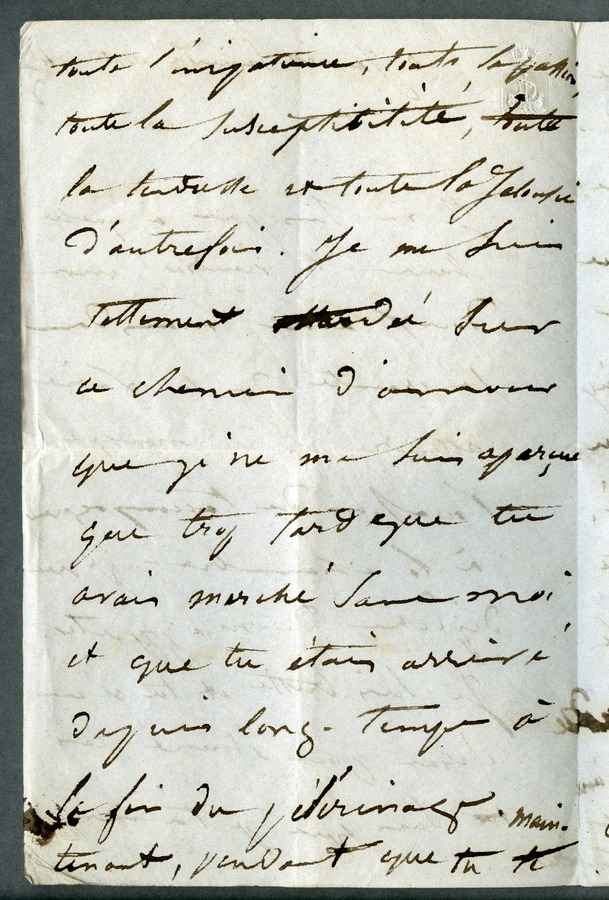 toute l'exigence, toute la passion,
toute la susceptibilité, toute
la tendresse et toute la jalousie
d'autrefois. Je me suis
tellement attardée sur
ce chemin d'amour
que je ne me suis aperçue
que trop tard que tu
avais marché sans moi
et que tu étais arrivé
depuis long-temps à
la fin du pélérinage. Main-
tenant, pendant que tu te